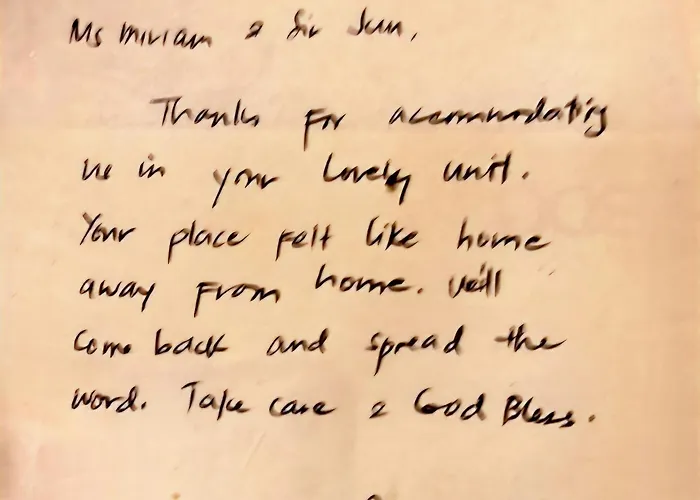 Ms Miriam & Sir Jun,
Thanks for accommodating
us in your lovely unit.
Your place felt like home
away from home. We'll
come back and spread the
word. Take care & God Bless.